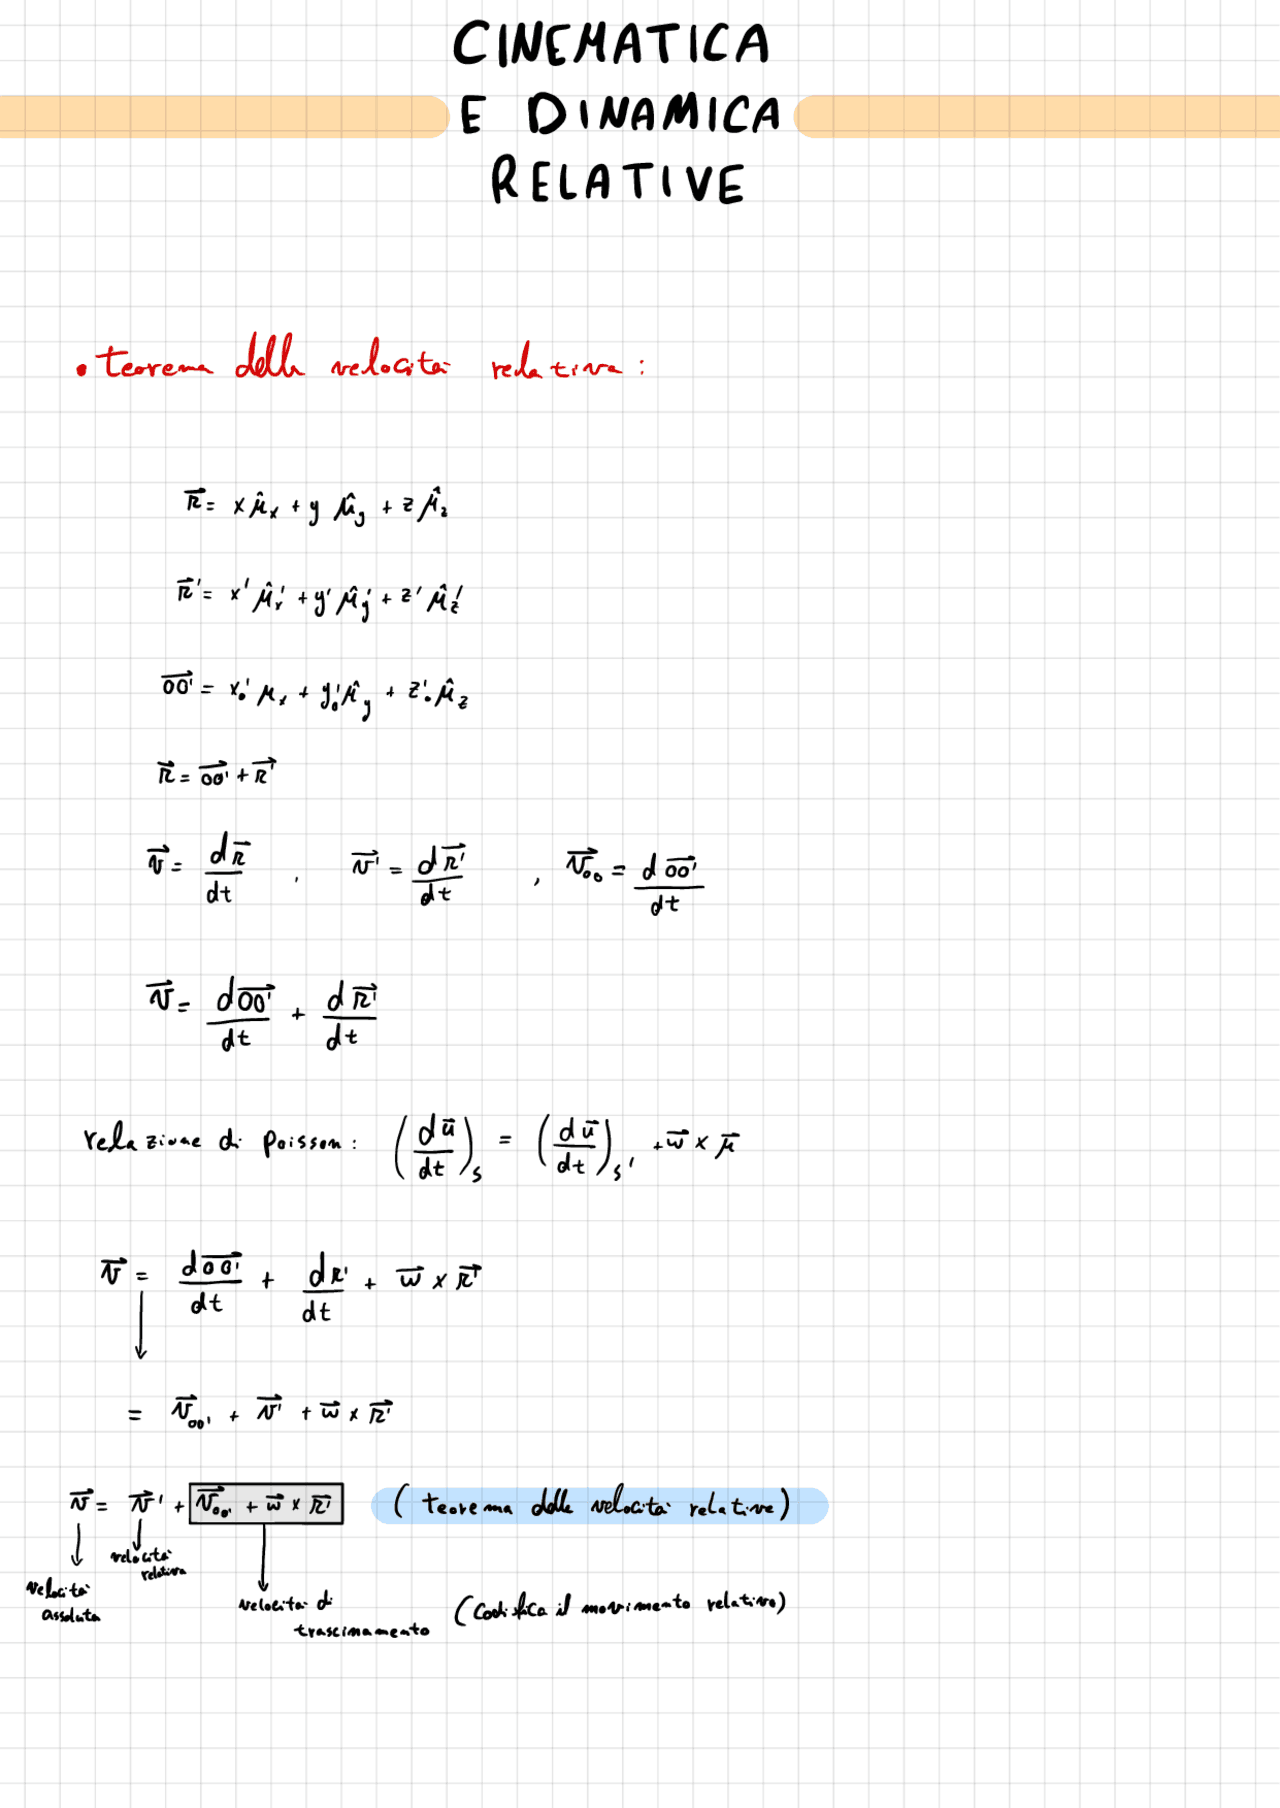 CINEMATICA
E DINAMICA
RELATIVE
• teorema della velocità relativa:
r⃗ = x μ̂ₓ + y μ̂_y + z μ̂_z
r⃗' = x' μ̂ₓ' + y' μ̂_y' + z' μ̂_z'
OO'⃗ = x₀' μₓ + y₀' μ̂_y + z'₀ μ̂_z
r⃗ = OO'⃗ + r⃗'
v⃗ = dr⃗/dt , v⃗' = dr⃗'/dt , v⃗_oo = dOO'⃗/dt
v⃗ = dOO'⃗/dt + dr⃗'/dt
relazione di Poisson: (du⃗/dt)_S = (du⃗/dt)_S' + w⃗ × μ⃗
v⃗ = dOO'⃗/dt + dr'/dt + w⃗ × r⃗'
= v⃗_oo' + v⃗' + w⃗ × r⃗'
v⃗ = v⃗' + v⃗_oo' + w⃗ × r⃗' (teorema delle velocità relative)
velocità assoluta
velocità relativa
velocità di trascinamento
(codifica il movimento relativo)